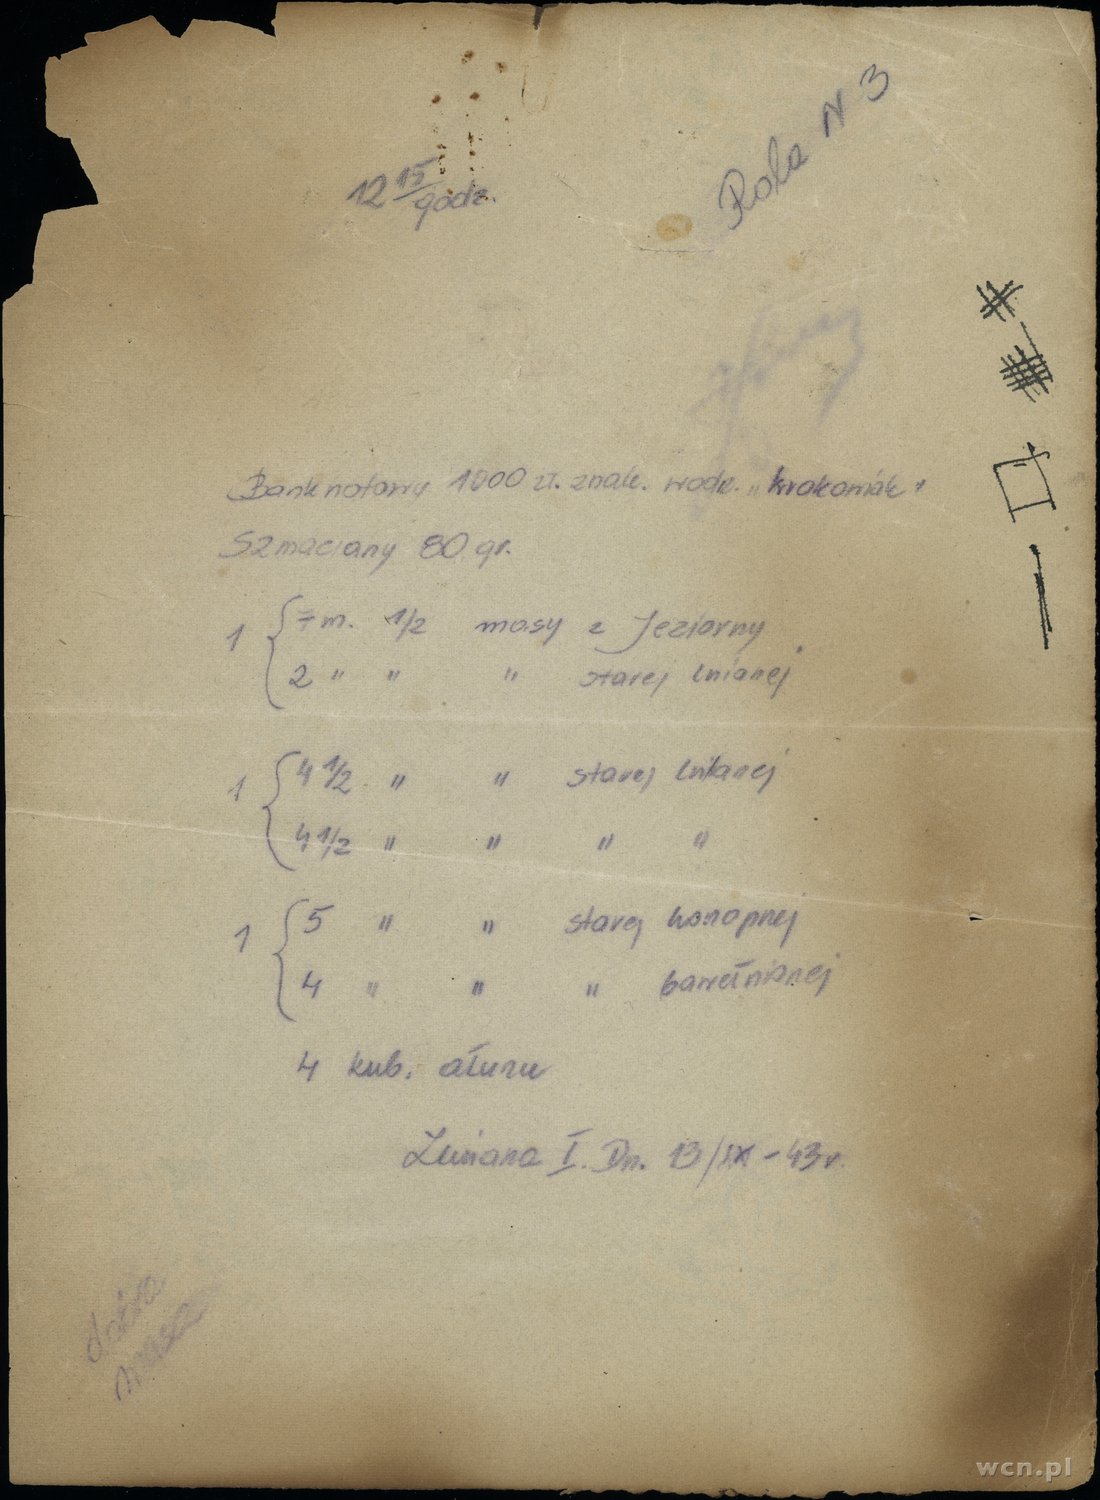 12 15/godz.
Rola N 3
Banknotowy 1000 zł. znak. wodn. „krakowiak"
Szmaciany 80 gr.
1 { 7 m. 1/2 masy z Jeziorny
2 " " " starej lnianej
1 { 4 1/2 " " starej lnianej
4 1/2 " " " "
1 { 5 " " starej konopnej
4 " " " bawełnianej
4 kub. ałunu
Zmiana I. Dn. 13/IX - 43 r.
wcn.pl